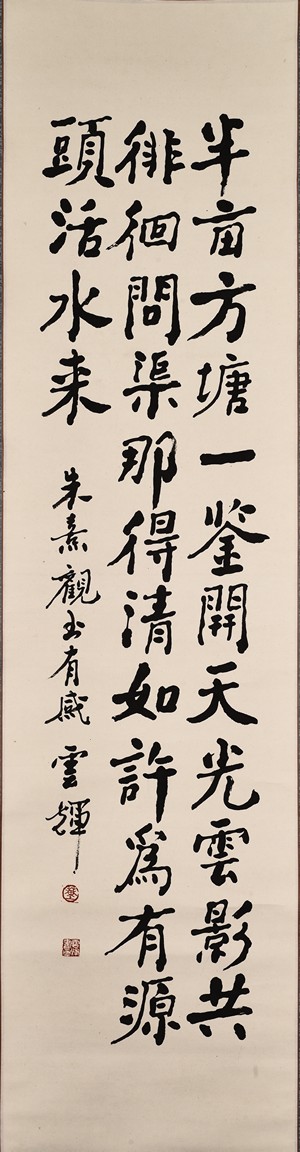 半亩方塘一鉴開天光雲影共
徘徊問渠那得清如許爲有源
頭活水来
朱熹觀书有感 雲輝